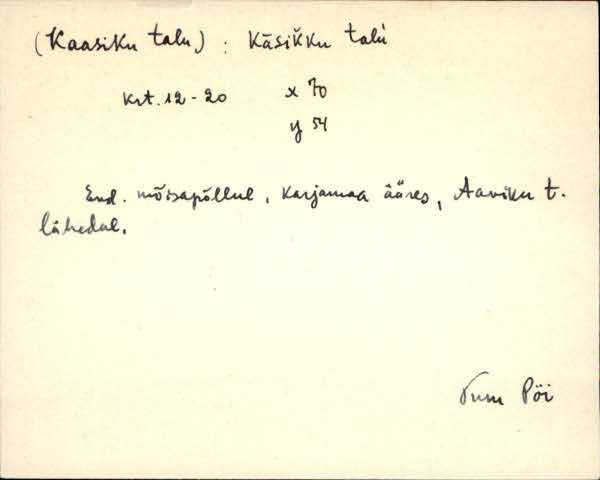 (Kaasiku talu) : Käsikku talu
krt. 12-20 x 70
y 54
End. mõisapõllul, karjamaa ääres, Aaviku t.
lähedal.
Pöi